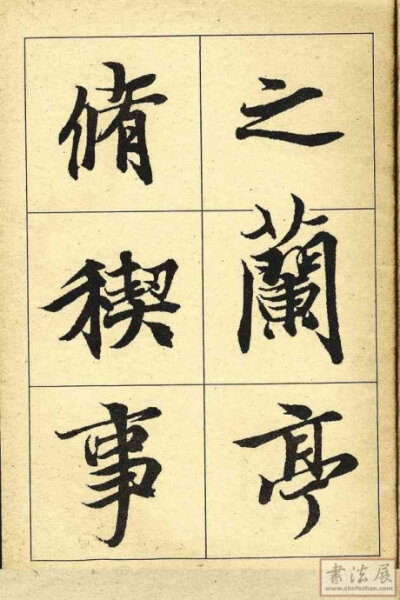 之蘭亭
脩稧事
書法展
www.shufazhan.com